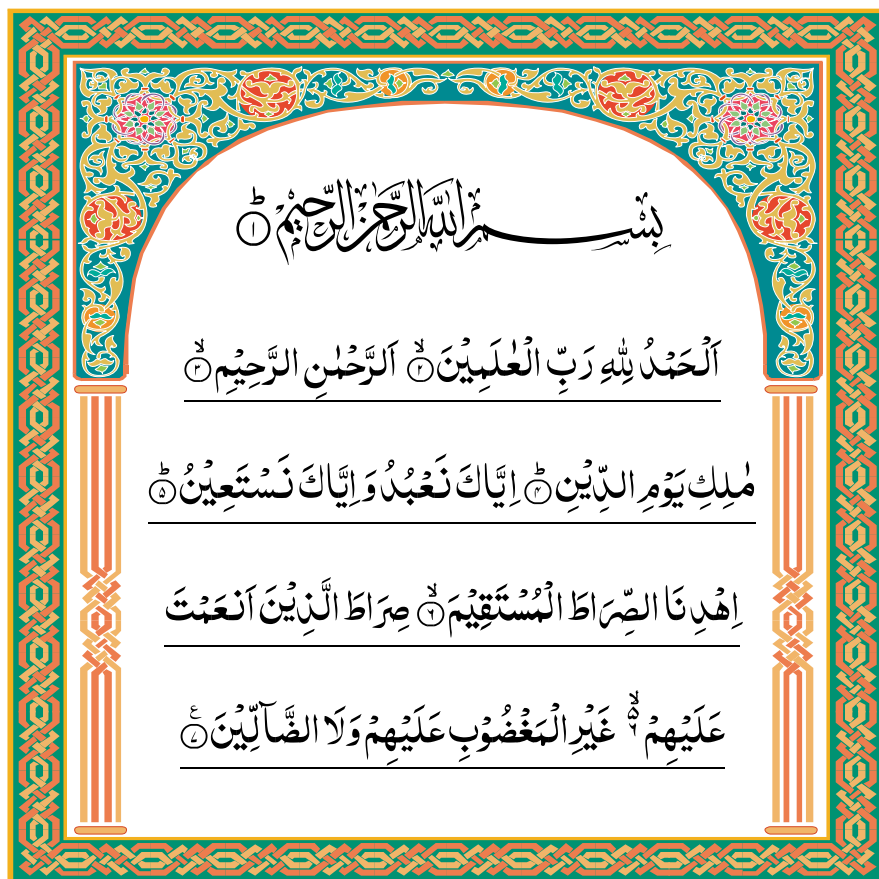 بِسْمِ اللّٰهِ الرَّحْمٰنِ الرَّحِيْمِ ؕ﴿۱﴾
اَلْحَمْدُ لِلّٰهِ رَبِّ الْعٰلَمِيْنَ ۙ﴿۲﴾ الرَّحْمٰنِ الرَّحِيْمِ ۙ﴿۳﴾
مٰلِكِ يَوْمِ الدِّيْنِ ؕ﴿۴﴾ اِيَّاكَ نَعْبُدُ وَ اِيَّاكَ نَسْتَعِيْنُ ؕ﴿۵﴾
اِهْدِنَا الصِّرَاطَ الْمُسْتَقِيْمَ ۙ﴿۶﴾ صِرَاطَ الَّذِيْنَ اَنعَمْتَ
عَلَيْهِمْ ۙ۬ۦ غَيْرِ الْمَغْضُوْبِ عَلَيْهِمْ وَلَا الضَّآلِّيْنَ ﴿۷﴾ ع